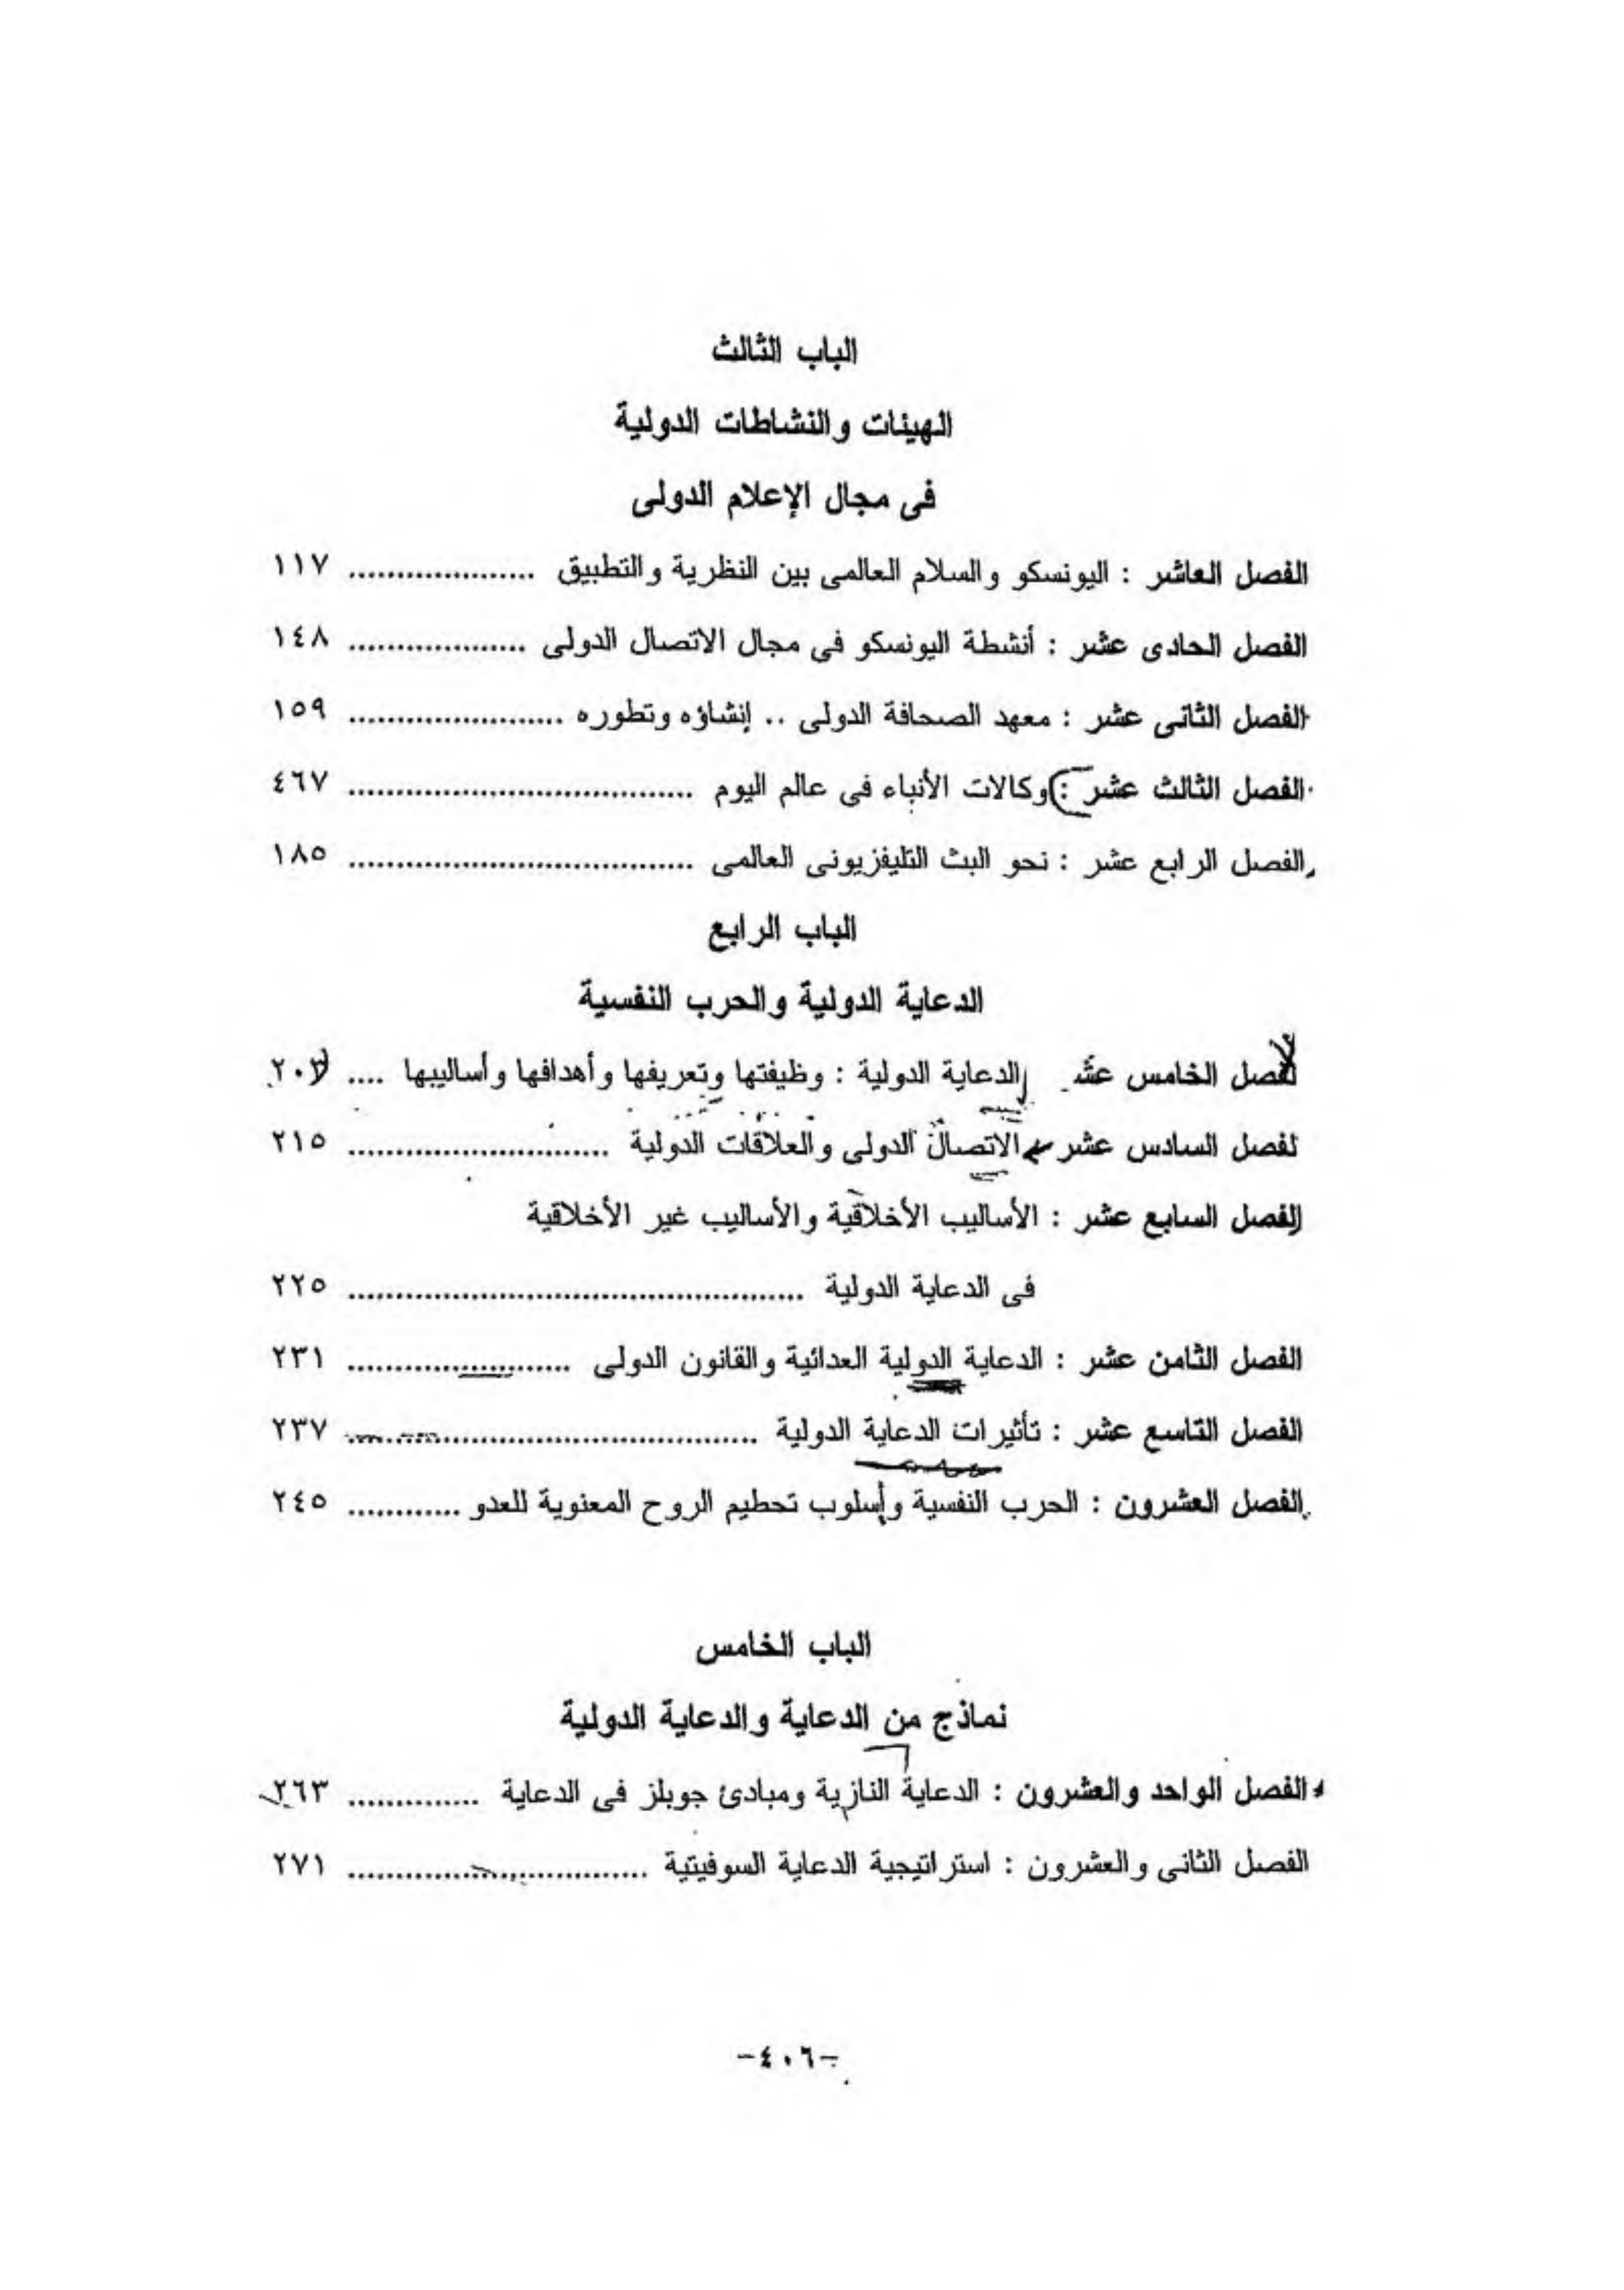 الباب الثالث
الهيئات والنشاطات الدولية
فى مجال الإعلام الدولى
الفصل العاشر : اليونسكو والسلام العالمى بين النظرية والتطبيق .................... ١١٧
الفصل الحادى عشر : أنشطة اليونسكو فى مجال الاتصال الدولى ................... ١٤٨
الفصل الثانى عشر : معهد الصحافة الدولى .. إنشاؤه وتطوره ....................... ١٥٩
الفصل الثالث عشر : وكالات الأنباء فى عالم اليوم ..................................... ٤٦٧
الفصل الرابع عشر : نحو البث التليفزيونى العالمى ..................................... ١٨٥
الباب الرابع
الدعاية الدولية والحرب النفسية
لفصل الخامس عشـ الدعاية الدولية : وظيفتها وتعريفها وأهدافها وأساليبها .... ٢٠٣
لفصل السادس عشر الاتصال الدولى والعلاقات الدولية ............................ ٢١٥
الفصل السابع عشر : الأساليب الأخلاقية والأساليب غير الأخلاقية
فى الدعاية الدولية ................................................. ٢٢٥
الفصل الثامن عشر : الدعاية الدولية العدائية والقانون الدولى ........................ ٢٣١
الفصل التاسع عشر : تأثيرات الدعاية الدولية ............................................ ٢٣٧
الفصل العشرون : الحرب النفسية وأسلوب تحطيم الروح المعنوية للعدو ............ ٢٤٥
الباب الخامس
نماذج من الدعاية والدعاية الدولية
الفصل الواحد والعشرون : الدعاية النازية ومبادئ جوبلز فى الدعاية .............. ٢٦٣
الفصل الثانى والعشرون : استراتيجية الدعاية السوفيتية ................................ ٢٧١
-٤٠٦-